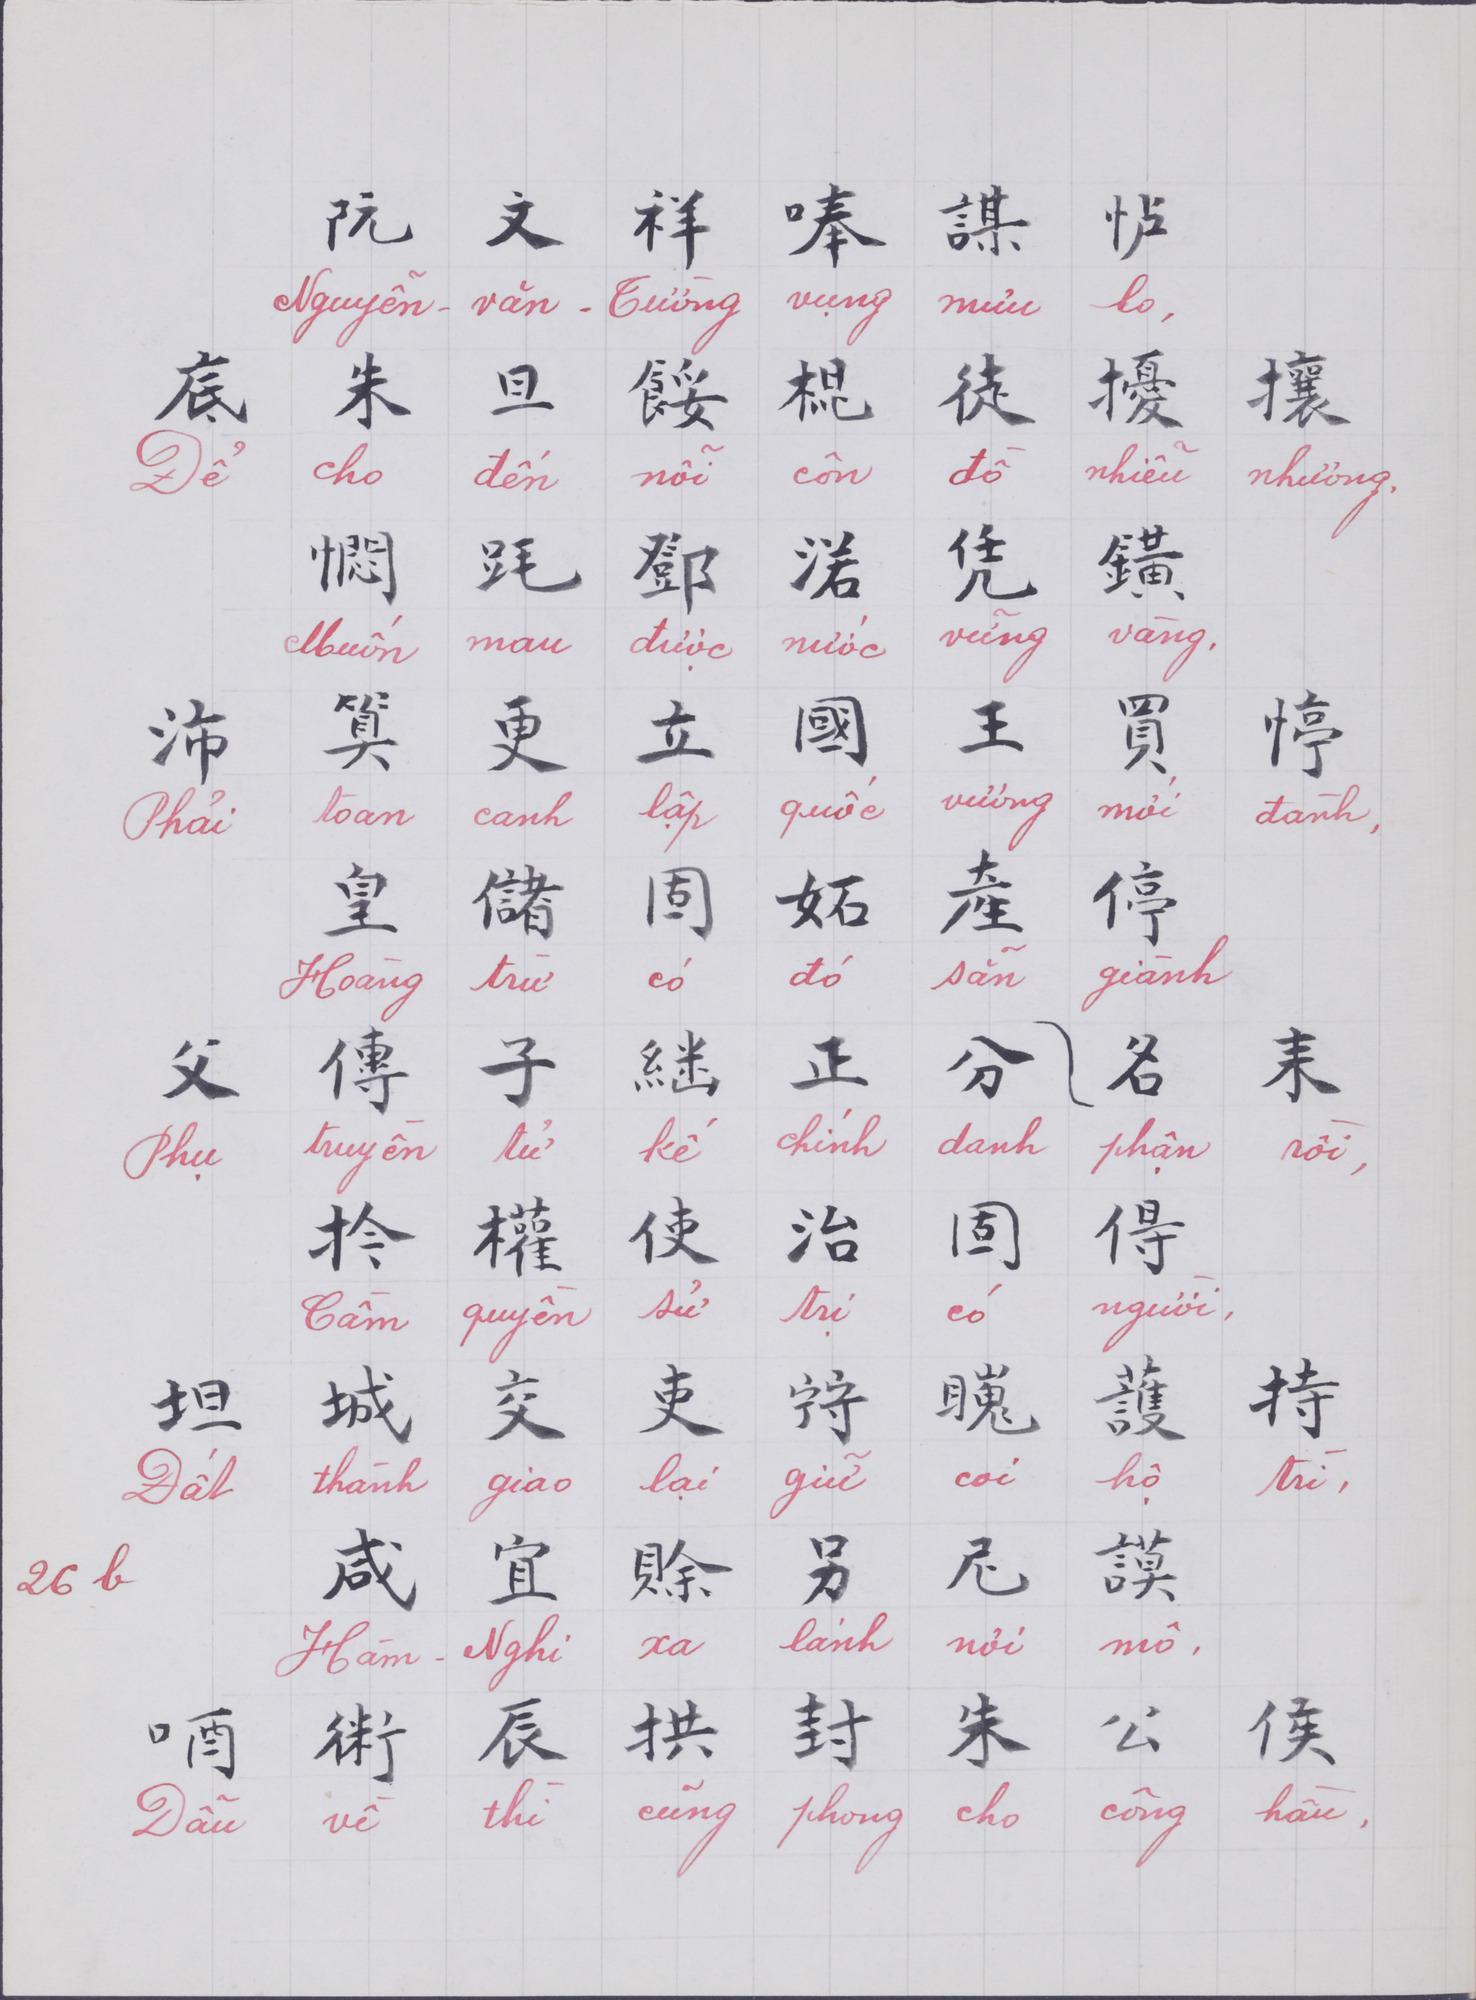 阮 文 祥 唪 謀 𢗼
Nguyễn - văn - Tường vụng mưu lo,
底 朱 旦 餒 棍 徒 擾 攘
Để cho đến nỗi côn đồ nhiễu nhương.
憫 𨀐 鄧 渃 凭 鐄
Muốn mau được nước vững vàng,
沛 算 更 立 國 王 買 停
Phải toan canh lập quốc vương mới đành,
皇 儲 固 妬 產 停
Hoàng trừ có đó sẵn giành
父 傳 子 継 正 分 名 耒
Phụ truyền tử kế chính danh phận rồi,
拎 權 使 治 固 㝵
Cầm quyền sử trị có người,
坦 城 交 吏 䁛 護 持
Đất thành giao lại giữ coi hộ trì,
26 b
咸 宜 賒 另 尼 謨
Hàm - Nghi xa lánh nơi mô,
唒 術 辰 拱 封 朱 公 侯
Dẫu về thì cũng phong cho công hầu,